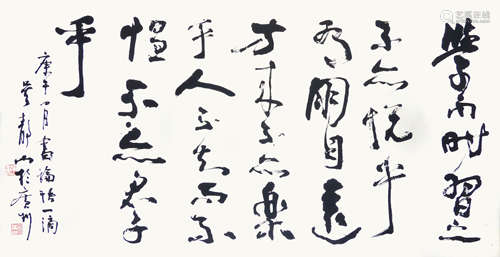 學而時習之
不亦悅乎
有朋自遠
方來不亦樂
乎人不知而不
慍不亦君子
乎
庚午月書論語一滴
山於廣州